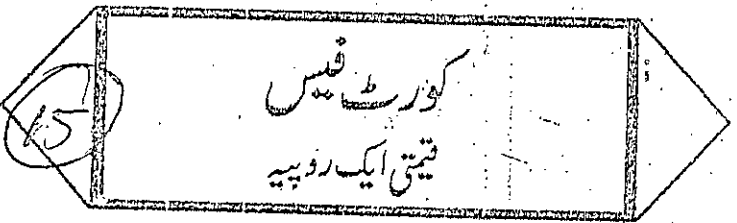 کورٹ فیس
قیمتی ایک روپیہ
15